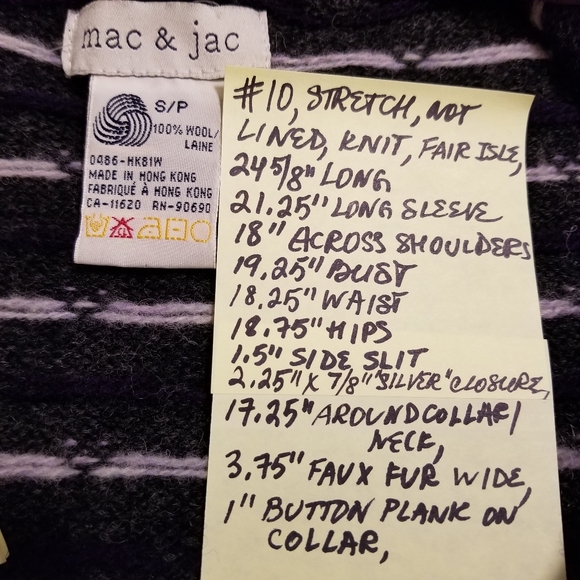 mac & jac
S/P
100% WOOL/
LAINE
0486-HK81W
MADE IN HONG KONG
FABRIQUÉ À HONG KONG
CA-11620 RN-90690
#10, STRETCH, NOT
LINED, KNIT, FAIR ISLE,
24 5/8" LONG
21.25" LONG SLEEVE
18" ACROSS SHOULDERS
19.25" BUST
18.25" WAIST
18.75" HIPS
1.5" SIDE SLIT
2.25" X 7/8" "SILVER" CLOSURE,
17.25" AROUND COLLAR/
NECK,
3.75" FAUX FUR WIDE,
1" BUTTON PLANK ON
COLLAR,